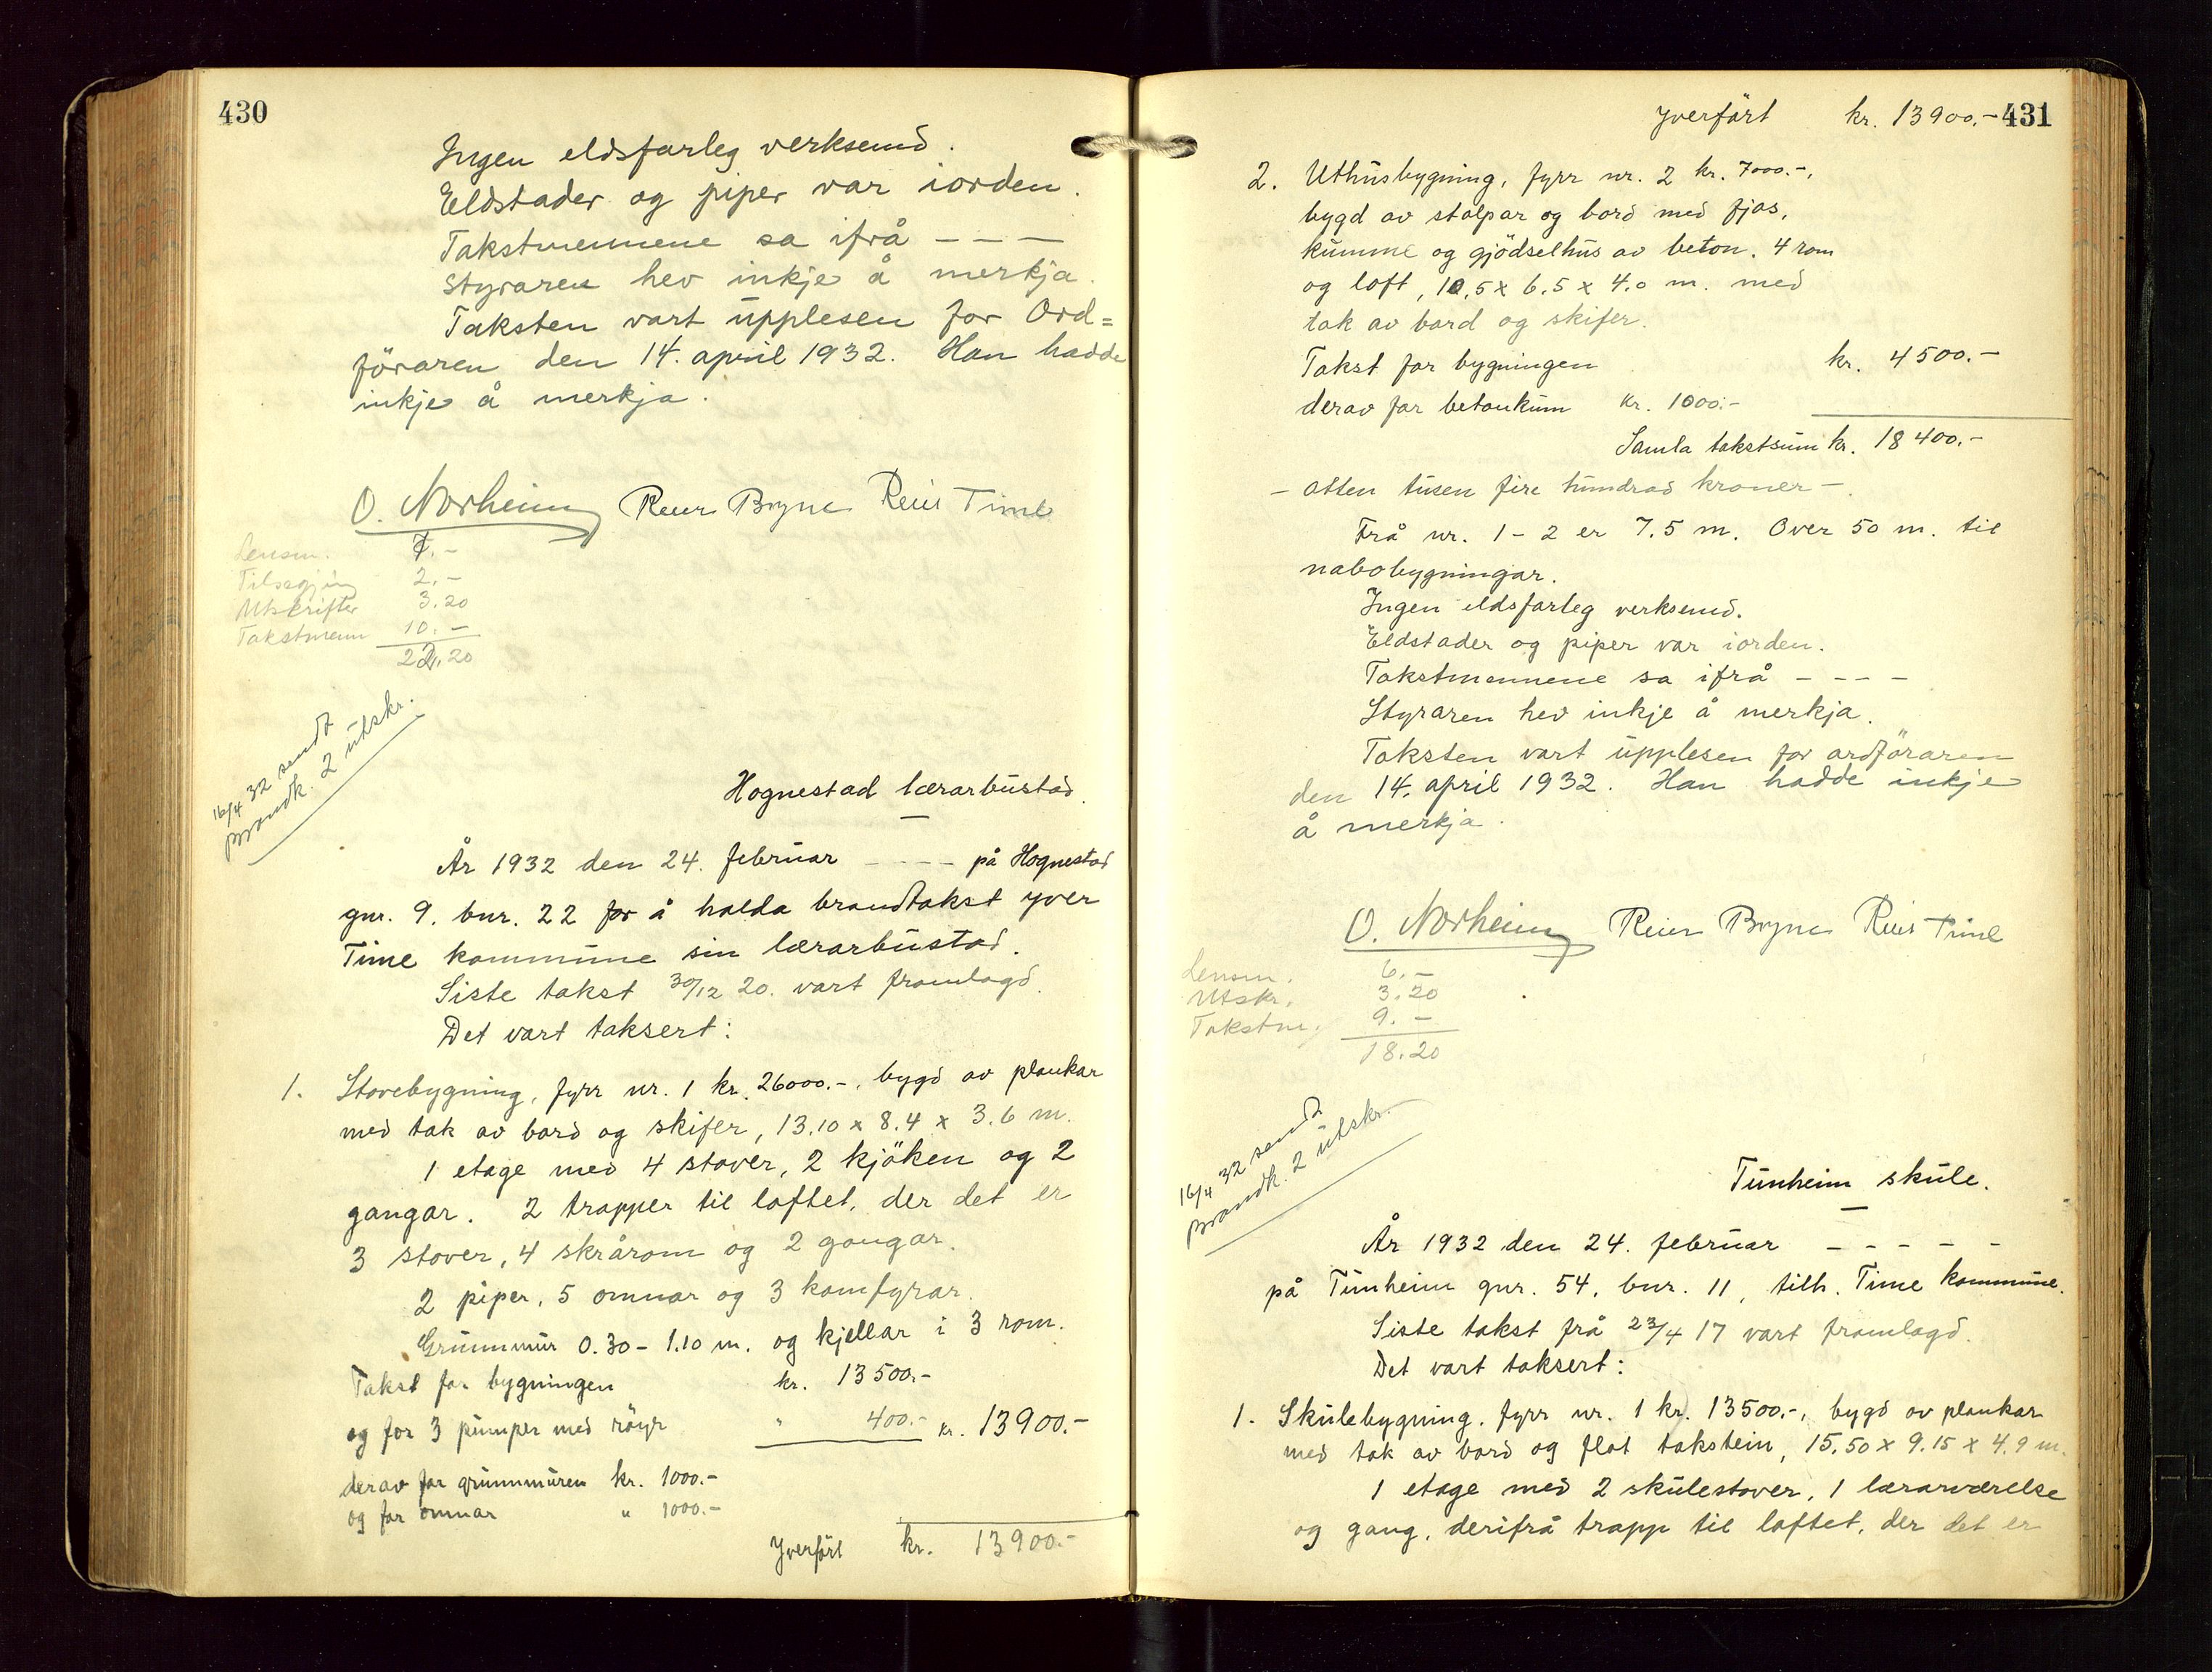 430
Ingen eldsfarleg verksemd.
Eldstader og piper var iorden.
Takstmennene sa ifrå – – –
Styraren hev inkje å merkja.
Taksten vart upplesen for Ord=
föraren den 14. april 1932. Han hadde
inkje å merkja.
O. Norheim Reier Bryne Reier Time
Lensm. 7.–
Tilsegjing 2.–
Utskrifter 3.20
Takstmenn 10.–
22.20
16/4 32 sendt
Brandk. 2 utskr.
Hognestad lærarbustad.
År 1932 den 24. februar – – – – på Hognestad
gnr. 9. bnr. 22 for å halda brandtakst yver
Time kommune sin lærarbustad.
Siste takst 30/12 20. vart framlagd.
Det vart taksert:
1. Stovebygning, fyrr nr. 1 kr. 26000.–, bygd av plankar
med tak av bord og skifer, 13.10 x 8.4 x 3.6 m.
1 etage med 4 stover, 2 kjöken og 2
gangar. 2 trapper til loftet, der det er
3 stover, 4 skrårom og 2 gangar.
2 piper, 5 omnar og 3 komfyrar.
Grunnmur 0.30 – 1.10 m. og kjellar i 3 rom.
Takst for bygningen kr. 13500.–
og for 3 pumper med röyr " 400.– kr. 13900.–
derav for grunnmuren kr. 1000.–
og for omnar " 1000.–
Yverfört kr. 13900.–
Yverfört kr. 13900.– 431
2. Uthusbygning, fyrr nr. 2 kr. 7000.–,
bygd av stolpar og bord med fjos,
kumme og gjödselhus av beton. 4 rom
og loft, 10.5 x 6.5 x 4.0 m. med
tak av bord og skifer.
Takst for bygningen kr. 4500.–
derav for betonkum kr. 1000.–
Samla takstsum kr. 18400.–
– atten tusen fire hundrad kroner –.
Frå nr. 1 – 2 er 7.5 m. Over 50 m. til
nabobygningar.
Ingen eldsfarleg verksemd.
Eldstader og piper var iorden.
Takstmennene sa ifrå – – – –
Styraren hev inkje å merkja.
Taksten vart upplesen for ordföraren
den 14. april 1932. Han hadde inkje
å merkja.
O. Norheim Reier Bryne Reier Time
Lensm. 6.–
Utskr. 3.20
Takstm. 9.–
18.20
16/4 32 sendt
Brandk. 2 utskr.
Tunheim skule.
År 1932 den 24. februar – – – – –
på Tunheim gnr. 54, bnr. 11, tilh. Time kommune.
Siste takst frå 23/4 17 vart framlagd.
Det vart taksert:
1. Skulebygning. fyrr nr. 1 kr. 13500.–, bygd av plankar
med tak av bord og flat takstein, 15.50 x 9.15 x 4.9 m.
1 etage med 2 skulestover, 1 lærarværelse
og gang, derifrå trapp til loftet, der det er